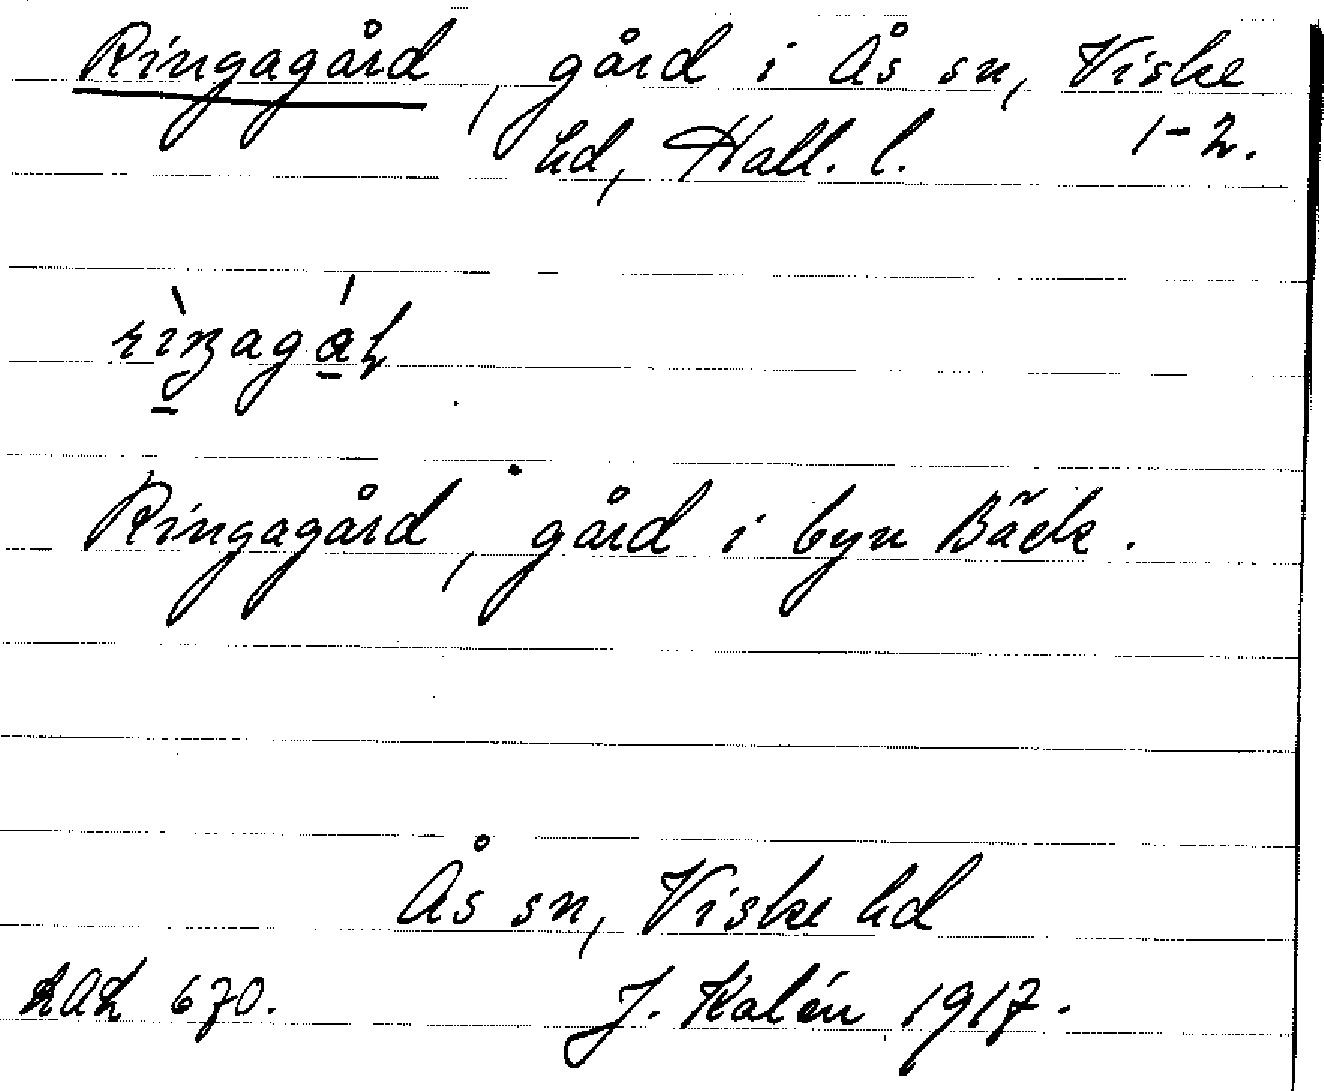 Ringagård, gård i Ås sn, Viske
hd, Hall. l. 1-2.
Ringagård, gård i byn Bäck.
Ås sn, Viske hd
LAL 670. J. Kalén 1917.